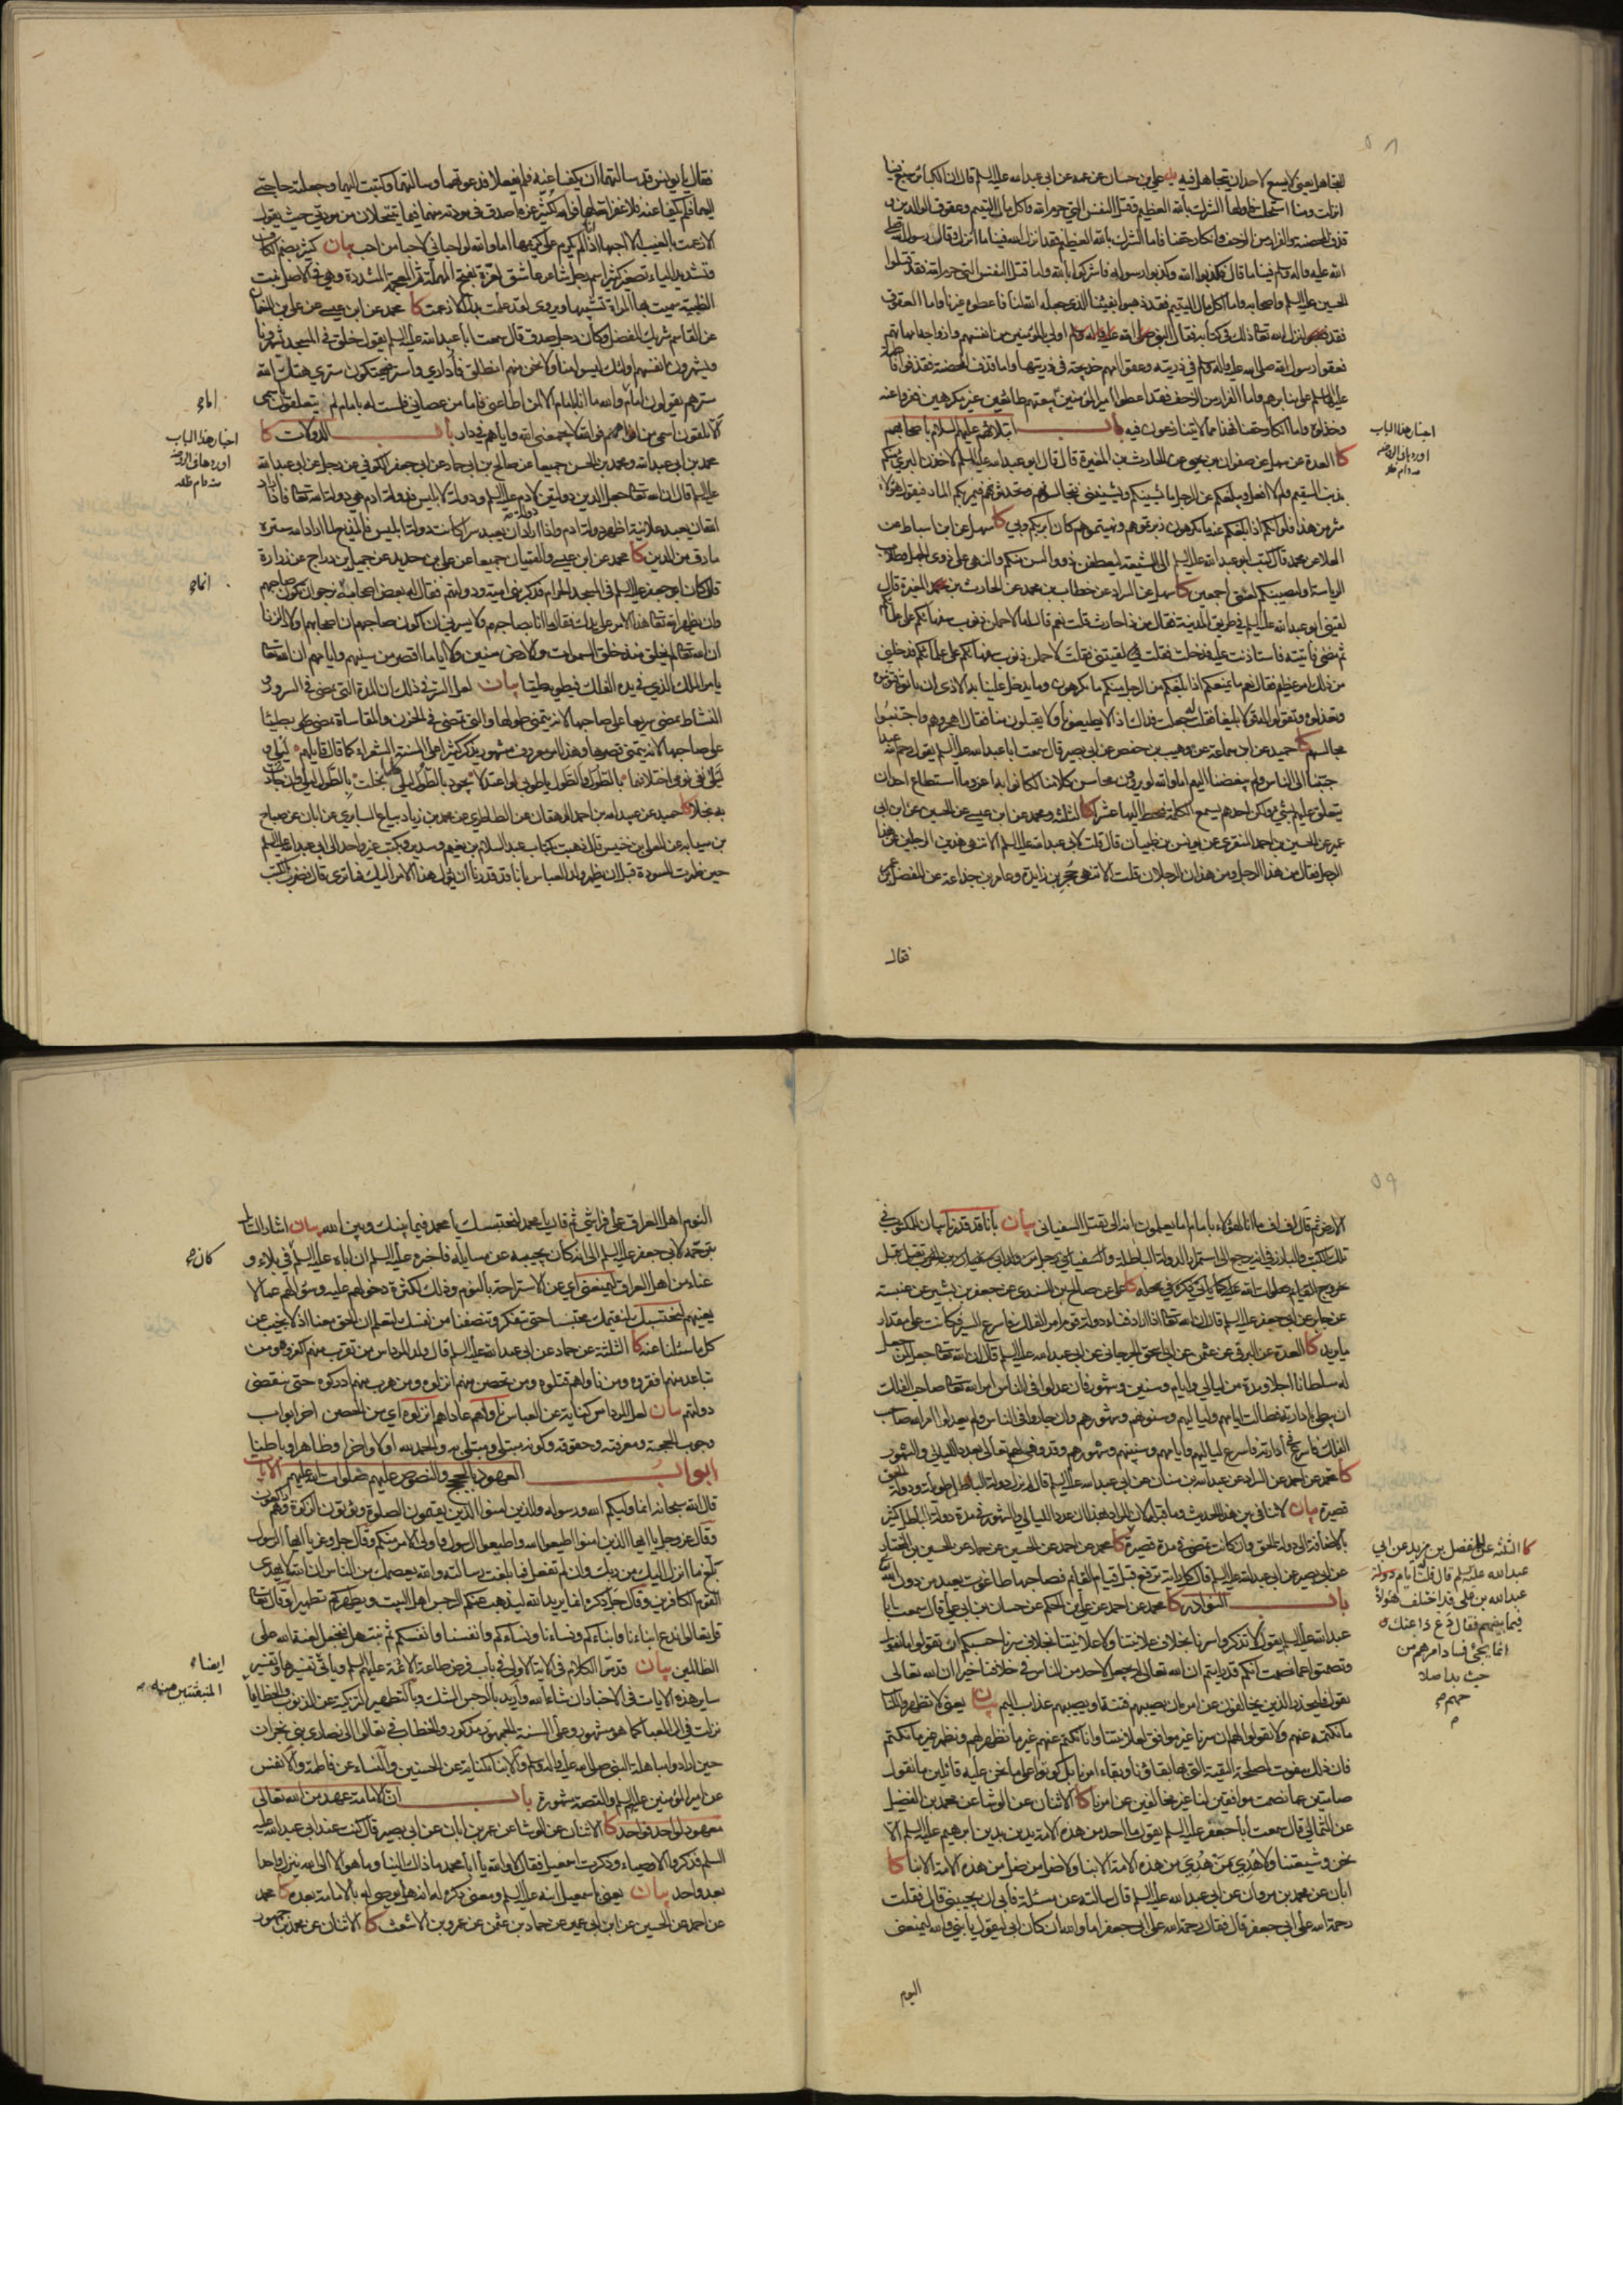 ٥٨
لتجاهل يعني لا يسع لاحد ان يتجاهل فيه يه علي بن حسان عن عمه عن ابي عبدالله عليه السلم قال ان الكبائر سبع فينا
انزلت ومنا استحلت فاولها الشرك بالله العظيم وقتل النفس التي حرم الله واكل مال اليتيم وعقوق الوالدين و
قذف المحصنة والفرار من الزحف وانكار حقنا فاما الشرك بالله العظيم فقد انزل الله فينا ما انزل وقال رسول الله صلى
الله عليه واله وسلم فينا ما قال فكذبوا الله وكذبوا رسوله فاشركوا بالله واما قتل النفس التي حرم الله فقد قتلوا
الحسين عليه السلم واصحابه واما اكل مال اليتيم فقد ذهبوا بفيئنا الذي جعله الله لنا فاعطوه غيرنا واما العقوق
فقد انزل الله تعالى ذلك في كتابه فقال النبي اولى بالمؤمنين من انفسهم وازواجه امهاتهم
فعقوا رسول الله صلى الله عليه واله وسلم في ذريته وعقوا امهم خديجة في ذريتها واما قذف المحصنة فقد قذفوا فاطمة
عليها السلم على منابرهم واما الفرار من الزحف فقد اعطوا امير المؤمنين بيعتهم طائعين غير مكرهين ففروا عنه
وخذلوه واما انكار حقنا فهذا مما لا يتنازعون فيه باب ابتلائهم عليهم السلام باصحابهم
كا العدة عن سهل عن صفوان بن يحيى عن الحارث بن المغيرة قال قال ابو عبدالله عليه السلم لاخذن البريء منكم
بذنب السقيم ولم لا افعل ويبلغكم عن الرجل ما يشينكم ويشينني فتجالسونهم وتحدثونهم فيمر بكم المار فيقول هؤلاء
شر من هذا فلو انكم اذا بلغكم عنه ما تكرهون زبرتموهم ونهيتموهم كان ابر بكم وبي كا سهل عن ابن اسباط عن
العلا عن محمد قال كتب ابو عبدالله عليه السلم الى الشيعة ليعطفن ذوو السن منكم والنهى على ذوي الجهل وطلاب
الرياسة او لتصيبنكم لعنتي اجمعين كا سهل عن السراد عن خطاب بن محمد عن الحارث بن المغيرة قال
لقيني ابو عبدالله عليه السلم في طريق المدينة فقال من ذا احارث قلت نعم قال اما لاحملن ذنوب سفهائكم على علمائكم
ثم مضى فاتيته فاستاذنت عليه فدخلت فقلت لقيتني فقلت لاحملن ذنوب سفهائكم على علمائكم فدخلني
من ذلك امر عظيم فقال نعم ما يمنعكم اذا بلغكم عن الرجل منكم ما تكرهون وما يدخل علينا به الاذى ان تاتوه فتؤنبوه
وتعذلوه وتقولوا له قولا بليغا فقلت له جعلت فداك اذا لا يطيعونا ولا يقبلون منا فقال اهجروهم واجتنبوا
مجالسهم كا حميد عن ابن سماعة عن وهيب بن حفص عن ابي بصير قال سمعت ابا عبدالله عليه السلم يقول رحم الله عبدا
حببنا الى الناس ولم يبغضنا اليهم اما والله لو يروون محاسن كلامنا لكانوا به اعز وما استطاع احد ان
يتعلق عليهم بشيء ولكن احدهم يسمع الكلمة فيحط اليها عشرا كا الثلثة ومحمد عن ابن عيسى عن الحسين عن ابن ابي
عمير عن الحسين بن احمد المنقري عن يونس بن ظبيان قال قلت لابي عبدالله عليه السلم الا تنهى هذين الرجلين عن هذا
الرجل فقال من هذا الرجل ومن هذان الرجلان قلت الا تنهى حجر بن زائدة وعامر بن جذاعة عن المفضل بن عمر
فقال
اخبار هذا الباب
اوردها في الروضة
منه دام ظله
فقال يا يونس قد سالتهما ان يكفا عنه فلم يفعلا فدعوتهما وسالتهما وكتبت اليهما وجعلته حاجتي
اليهما فلم يكفا عنه فلا غفر الله لهما فوالله لكثير عزة اصدق في مودته منهما فيما ينتحلان من مودتي حيث يقول
الا زعمت بالغيب الا احبها اذا انا لم يكرم علي كريمها اما والله لو احباني لاحبا من احب بيان كثير بضم الكاف
وتشديد الياء تصغير كثير اسم رجل شاعر عاشق لعزة بفتح المهملة ثم المعجمة المشددة وهي في الاصل بنت
الظبية سميت بها المراة تشبيها ويروى لقد علمت بدل الا زعمت كا محمد عن ابن عيسى عن علي بن النعمان
عن القاسم شريك المفضل وكان رجل صدق قال سمعت ابا عبدالله عليه السلم يقول خلق في المسجد يشهرونا
ويشهرون انفسهم اولئك ليسوا منا ولا نحن منهم انطلق فاداري واستر فيهتكون ستري هتك الله
سترهم يقولون امام والله ما انا بامام الا لمن اطاعني فاما من عصاني فلست له بامام لم يتعلقون باسمي
الا يلقون اسمي من افواههم فوالله لا يجمعني الله واياهم في دار باب الدولات كا
محمد بن ابي عبدالله ومحمد بن الحسن جميعا عن صالح بن ابي حماد عن ابي جعفر الكوفي عن رجل عن ابي عبدالله
عليه السلم قال ان الله تعالى جعل الدين دولتين لادم عليه السلم ودولة لابليس فدولة ادم هي دولة الله تعالى فاذا اراد
الله ان يعبد علانية اظهر دولة ادم واذا اراد ان يعبد سرا كانت دولة ابليس فالمذيع لما اراد الله ستره
مارق من الدين كا محمد عن ابن عيسى والقميان جميعا عن علي بن حديد عن جميل بن دراج عن زرارة
قال كان ابو جعفر عليه السلم في المسجد الحرام فذكر بني امية ودولتهم فقال له بعض اصحابه انما نرجو ان تكون صاحبهم
وان يظهر الله تعالى هذا الامر على يديك فقال ما انا بصاحبهم ولا يسرني ان اكون صاحبهم ان اصحابهم اولاد الزنا
ان الله تعالى لم يخلق منذ خلق السموات والارض سنين ولا اياما اقصر من سنيهم وايامهم ان الله تعالى
يامر الملك الذي في يده الفلك فيطويه طيا بيان لعل السر في ذلك ان المدة التي تمضي في السرور و
النشاط تمضي سريعا على صاحبها لانه يتمنى طولها والتي تمضي في الحزن والمقاساة تمضي بطيئا
على صاحبها لانه يتمنى قصرها وهذا امر معروف مشهور يذكر كثيرا على السنة الشعراء كما قال قائلهم ليلي و
ليلى نفى نومي اختلافهما بالطول والطول يا طوبى لو اعتدلا يجود بالطول ليلي كلما بخلت بالطول ليلى وان جادت
به بخلا كا حميد عن عبيدالله بن احمد الدهقان عن الطاطري عن محمد بن زياد بياع السابري عن ابان عن صباح
بن سيابة عن المعلى بن خنيس قال ذهبت بكتاب عبد السلام بن نعيم وسدير وكتب غير واحد الى ابي عبدالله عليه السلم
حين ظهرت المسودة قبل ان يظهر ولد العباس بانا قد قدرنا ان يؤل هذا الامر اليك فما ترى قال فضرب بالكتب
امام
اخبار هذا الباب
اوردها في الروضة
منه دام ظله
انما
٥٩
الارض ثم قال اف اف ما انا لهؤلاء بامام اما يعلمون انه انما يقتل السفياني بيان بانا قد قدرنا بيان للمكتوب في
تلك الكتب والبارز في انه يرجع الى استمرار الدولة الباطلة والسفياني رجل من ولد ابي سفيان يقتل قبل
خروج القائم صلوات الله عليه كما ياتي ذكره في محله كا علي عن صالح بن السندي عن جعفر بن بشير عن عنبسة
عن جابر عن ابي جعفر عليه السلم قال ان الله تعالى اذا اراد فناء دولة قوم امر الفلك فاسرع السير فكانت على مقدار
ما يريد كا العدة عن البرقي عن عثمن عن ابي اسحق الجرجاني عن ابي عبدالله عليه السلم قال ان الله تعالى جعل لمن جعل
له سلطانا اجلا ومدة من ليالي وايام وسنين وشهور فان عدلوا في الناس امر الله تعالى صاحب الفلك
ان يبطئ بادارته فطالت ايامهم ولياليهم وسنوهم وشهورهم وان جاروا في الناس ولم يعدلوا امر الله صاحب
الفلك فاسرع في ادارته فاسرع لياليهم وايامهم وسنينهم وشهورهم وقد وفى لهم تعالى بعدد الليالي والشهور
كا محمد عن احمد عن السراد عن عبدالله بن سنان عن ابي عبدالله عليه السلم قال لم تزل دولة الباطل طويلة ودولة الحق
قصيرة بيان لا تنافي بين هذا الحديث وما قبله لان المراد بهذا ان عدد الليالي والشهور في مدة دولة الباطل كثير
بالاضافة الى دولة الحق وان كانت تمضي في مدة قصيرة كا محمد عن احمد عن الحسين عن حماد عن الحسين بن المختار
عن ابي بصير عن ابي عبدالله عليه السلم قال كل راية ترفع قبل قيام القائم فصاحبها طاغوت يعبد من دون الله
باب النوادر كا محمد عن احمد عن علي بن الحكم عن حسان بن ابي علي قال سمعت ابا
عبدالله عليه السلم يقول لا تذكروا سرنا بخلاف علانيتنا ولا علانيتنا بخلاف سرنا حسبكم ان تقولوا ما نقول
وتصمتوا عما نصمت انكم قد رايتم ان الله تعالى لم يجعل لاحد من الناس في خلافنا خيرا ان الله تعالى
يقول فليحذر الذين يخالفون عن امره ان تصيبهم فتنة او يصيبهم عذاب اليم بيان يعني لا تظهروا للناس
ما نكتمه عنهم ولا تقولوا لهم ان سرنا غير موافق لعلانيتنا وانا نكتم عنهم غير ما نظهر لهم ونظهر غير ما نكتم
فان ذلك يفوت مصلحة التقية التي بها بقاؤنا وبقاء امرنا بل كونوا على ما نحن عليه قائلين ما نقول
صامتين عما نصمت موافقين لنا غير مخالفين عن امرنا كا الاثنان عن الوشا عن محمد بن الفضيل
عن الثمالي قال سمعت ابا جعفر عليه السلم يقول ما احد من هذه الامة يدين بدين ابرهيم عليه السلم الا
نحن وشيعتنا ولا هدي من هدي من هذه الامة الا بنا ولا ضل من ضل من هذه الامة الا بنا كا
ابان عن محمد بن مروان عن ابي عبدالله عليه السلم قال سالته عن مسئلة فابى ان يجيبني قال فقلت
رحمة الله على ابي جعفر قال فقال رحمة الله على ابي جعفر اما والله ان كان ابي ليقول يا بني والله ليمنعني
اليوم
كا الثلثة عن المفضل بن مزيد عن ابي
عبدالله عليه السلم قال قلت له ايام دولة
عبدالله بن علي قد اختلف هؤلاء
فيما بينهم فقال دع ذا عنك
انما يجيء فساد امرهم من
حيث بدا صلا
حهم
النوم اهل العراق على فراشي ثم قال يا محمد لتحتسبك يا محمد فيما بينك وبين الله بيان اشار السائل
بترحمه لابي جعفر عليه السلم الى انه كان يجيبه عن مسايله فاخبره عليه السلم ان اباه عليه السلم في بلاء و
عناء من اهل العراق ليمنعني اي عن الاستراحة بالنوم وذلك لكثرة دخولهم عليه وسؤالهم عما لا
يعنيهم لتحتسبك لنقيمك محتسبا حتى تتفكر وتنصفنا من نفسك لتعلم ان الحق معنا اذ لا نجيب عن
كل ما سئلنا عنه كا الثلثة عن حماد عن ابي عبدالله عليه السلم قال ولد المرداس من تقرب منهم كفروه ومن
تباعد منهم افقروه ومن ناواهم قتلوه ومن تحصن منهم انزلوه ومن هرب منهم ادركوه حتى تنقضي
دولتهم بيان لعل المرداس كناية عن العباس ناواهم عاداهم انزلوه اي من الحصن اخر ابواب
وجوب الحجة ومعرفته وحقوقه وكونه مبتلى ومبتلى به والحمد لله اولا واخرا وظاهرا وباطنا
ابواب العهود بالحجج والنصوص عليهم صلوات الله عليهم الايات
قال الله سبحانه انما وليكم الله ورسوله والذين امنوا الذين يقيمون الصلوة ويؤتون الزكوة وهم راكعون
وقال عز وجل يا ايها الذين امنوا اطيعوا الله واطيعوا الرسول واولى الامر منكم وقال جل وعز يا ايها الرسول
بلغ ما انزل اليك من ربك وان لم تفعل فما بلغت رسالته والله يعصمك من الناس ان الله لا يهدي
القوم الكافرين وقال جل ذكره انما يريد الله ليذهب عنكم الرجس اهل البيت ويطهركم تطهيرا وقال تعالى
قل تعالوا ندع ابناءنا وابناءكم ونساءنا ونساءكم وانفسنا وانفسكم ثم نبتهل فنجعل لعنة الله على
الظالمين بيان قد مر الكلام في الاية الاولى في باب فرض طاعة الائمة عليهم السلم وياتي تفسيرها وتفسير
ساير هذه الايات في الاخبار ان شاء الله واريد بالرجس الشك وبالتطهير التزكية عن الذنوب والخطايا
نزلت في ال العبا كما هو مشهور وعلى السنة الجمهور مذكور والخطاب في تعالوا الى نصارى بني نجران
حين ارادوا مباهلة النبي صلى الله عليه واله وسلم والابناء كناية عن الحسنين والنساء عن فاطمة والانفس
عن امير المؤمنين عليهم السلم والقصة مشهورة باب ان الامامة عهد من الله تعالى
معهود لواحد فواحد كا الاثنان عن الوشا عن عمر بن ابان عن ابي بصير قال كنت عند ابي عبدالله عليه
السلم فذكروا الاوصياء وذكرت اسمعيل فقال لا والله يا ابا محمد ما ذاك الينا وما هو الا الى الله ينزل واحدا
بعد واحد بيان يعني باسمعيل ابنه عليه السلم ومعنى ذكره له انه هل يوصي له بالامامة بعده كا محمد
عن احمد عن الحسين عن ابن ابي عمير عن حماد بن عثمن عن عمرو بن الاشعث كا الاثنان عن محمد بن جمهور
كان
ايضا